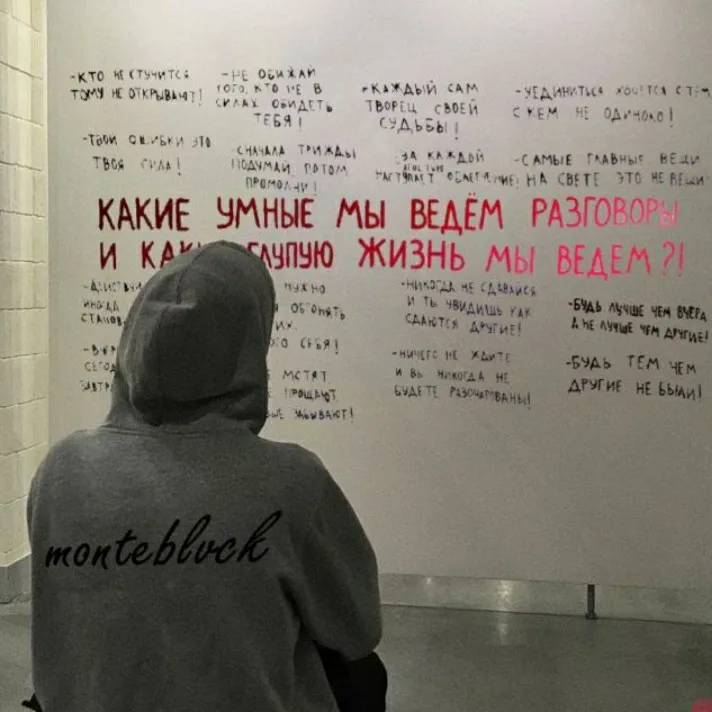 -КТО НЕ СТУЧИТСЯ
ТОМУ НЕ ОТКРЫВАЮТ!
-НЕ ОБИЖАЙ
ТОГО, КТО НЕ В
СИЛАХ ОБИДЕТЬ
ТЕБЯ!
-КАЖДЫЙ САМ
ТВОРЕЦ СВОЕЙ
СУДЬБЫ!
-УЕДИНИТЬСЯ ХОЧЕТСЯ С ТЕМ
С КЕМ НЕ ОДИНОКО!
-ТВОИ ОШИБКИ ЭТО
ТВОЯ СИЛА!
-СНАЧАЛА ТРИЖДЫ
ПОДУМАЙ, ПОТОМ
ПРОМОЛЧИ!
-ЗА КАЖДОЙ
НАСТУПАЕТ ОБЛЕГЧЕНИЕ!
-САМЫЕ ГЛАВНЫЕ ВЕЩИ
НА СВЕТЕ ЭТО НЕ ВЕЩИ
КАКИЕ УМНЫЕ МЫ ВЕДЁМ РАЗГОВОРЫ
И КАК ГЛУПУЮ ЖИЗНЬ МЫ ВЕДЕМ?!
НУЖНО
ИНОГДА ОБГОНЯТЬ
СТАНОВ ИХ.
СЕБЯ!
СЕГО
ЗАВТРА
МСТЯТ
ПРОЩАЮТ
ЗАБЫВАЮТ!
-НИКОГДА НЕ СДАВАЙСЯ
И ТЫ УВИДИШЬ КАК
СДАЮТСЯ ДРУГИЕ!
-НИЧЕГО НЕ ЖДИТЕ
И ВЫ НИКОГДА НЕ
БУДЕТЕ РАЗОЧАРОВАНЫ!
-БУДЬ ЛУЧШЕ ЧЕМ ВЧЕРА
А НЕ ЛУЧШЕ ЧЕМ ДРУГИЕ!
-БУДЬ ТЕМ ЧЕМ
ДРУГИЕ НЕ БЫЛИ!
monteblvck